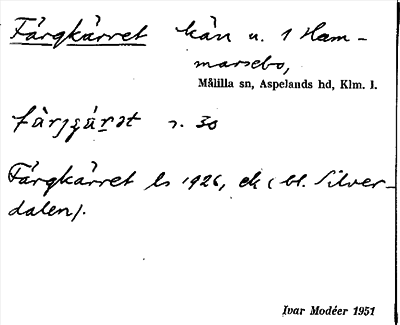 Färgkärret kärr u. 1 Ham-
marsebo,
Målilla sn, Aspelands hd, Klm. l.
färjçárət s. 30
Färgkärret ls 1926, ek (bl. Silver-
dalen).
Ivar Modéer 1951